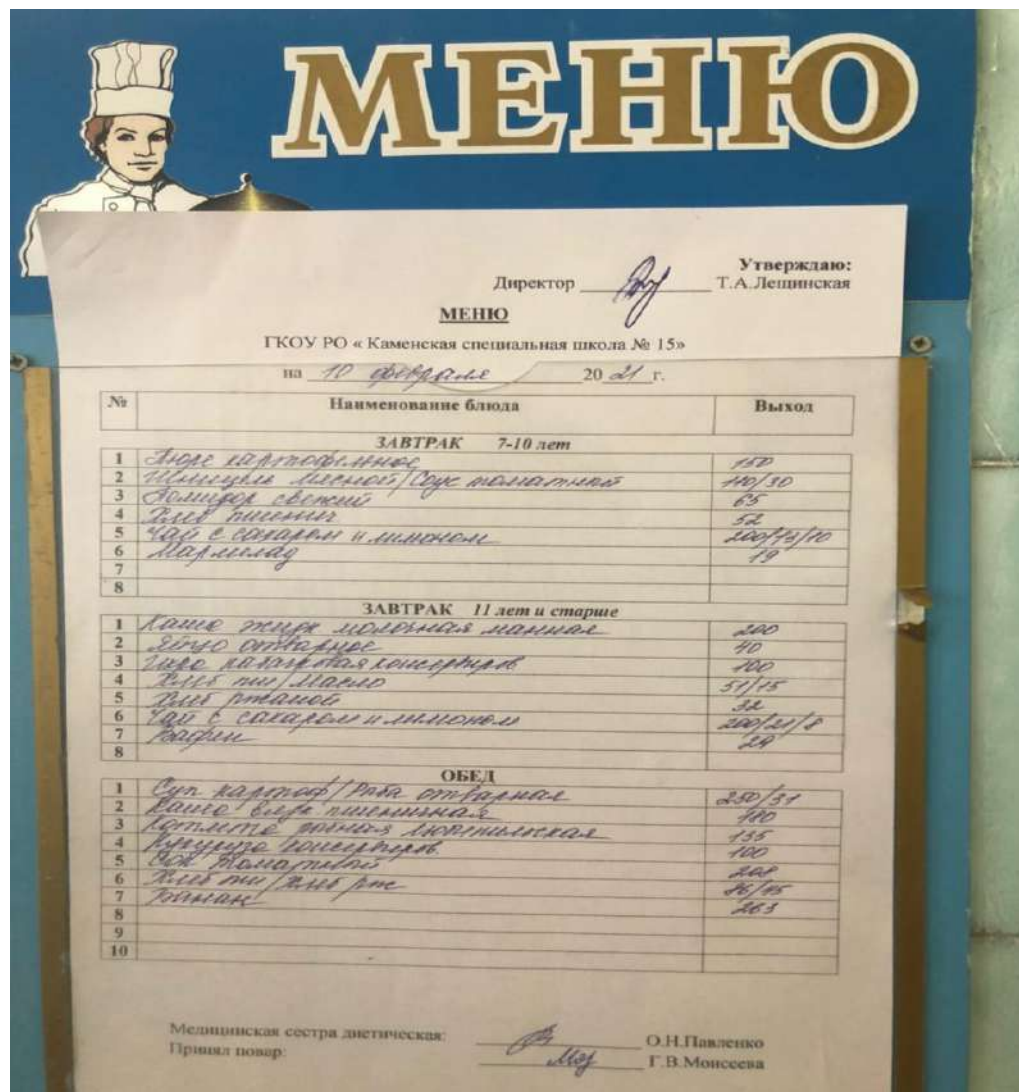 МЕНЮ
Утверждаю:
Директор Т.А.Лещинская
МЕНЮ
ГКОУ РО « Каменская специальная школа № 15»
на 10 февраля 20 21 г.
№ Наименование блюда Выход
ЗАВТРАК 7-10 лет
1 Пюре картофельное 150
2 Шницель мясной/Соус томатный /30
3 Помидор свежий 65
4 Хлеб пшеничн. 52
5 Чай с сахаром и лимоном 200/13/10
6 Мармелад 19
7
8
ЗАВТРАК 11 лет и старше
1 Каша жидк молочная манная 200
2 Яйцо отварное 40
3 Икра кабачковая консервиров 100
4 Хлеб пш/Масло 51/15
5 Хлеб ржаной 32
6 Чай с сахаром и лимоном 200/21/8
7 Вафли 29
8
ОБЕД
1 Суп картоф/Рыба отварная 250/31
2 Каша вязк пшеничная 180
3 Котлета рыбная 135
4 Кукуруза консервиров. 100
5 Сок томатный 208
6 Хлеб пш/Хлеб рж 86/75
7 Банан 263
8
9
10
Медицинская сестра диетическая: О.Н.Павленко
Принял повар: Г.В.Моисеева